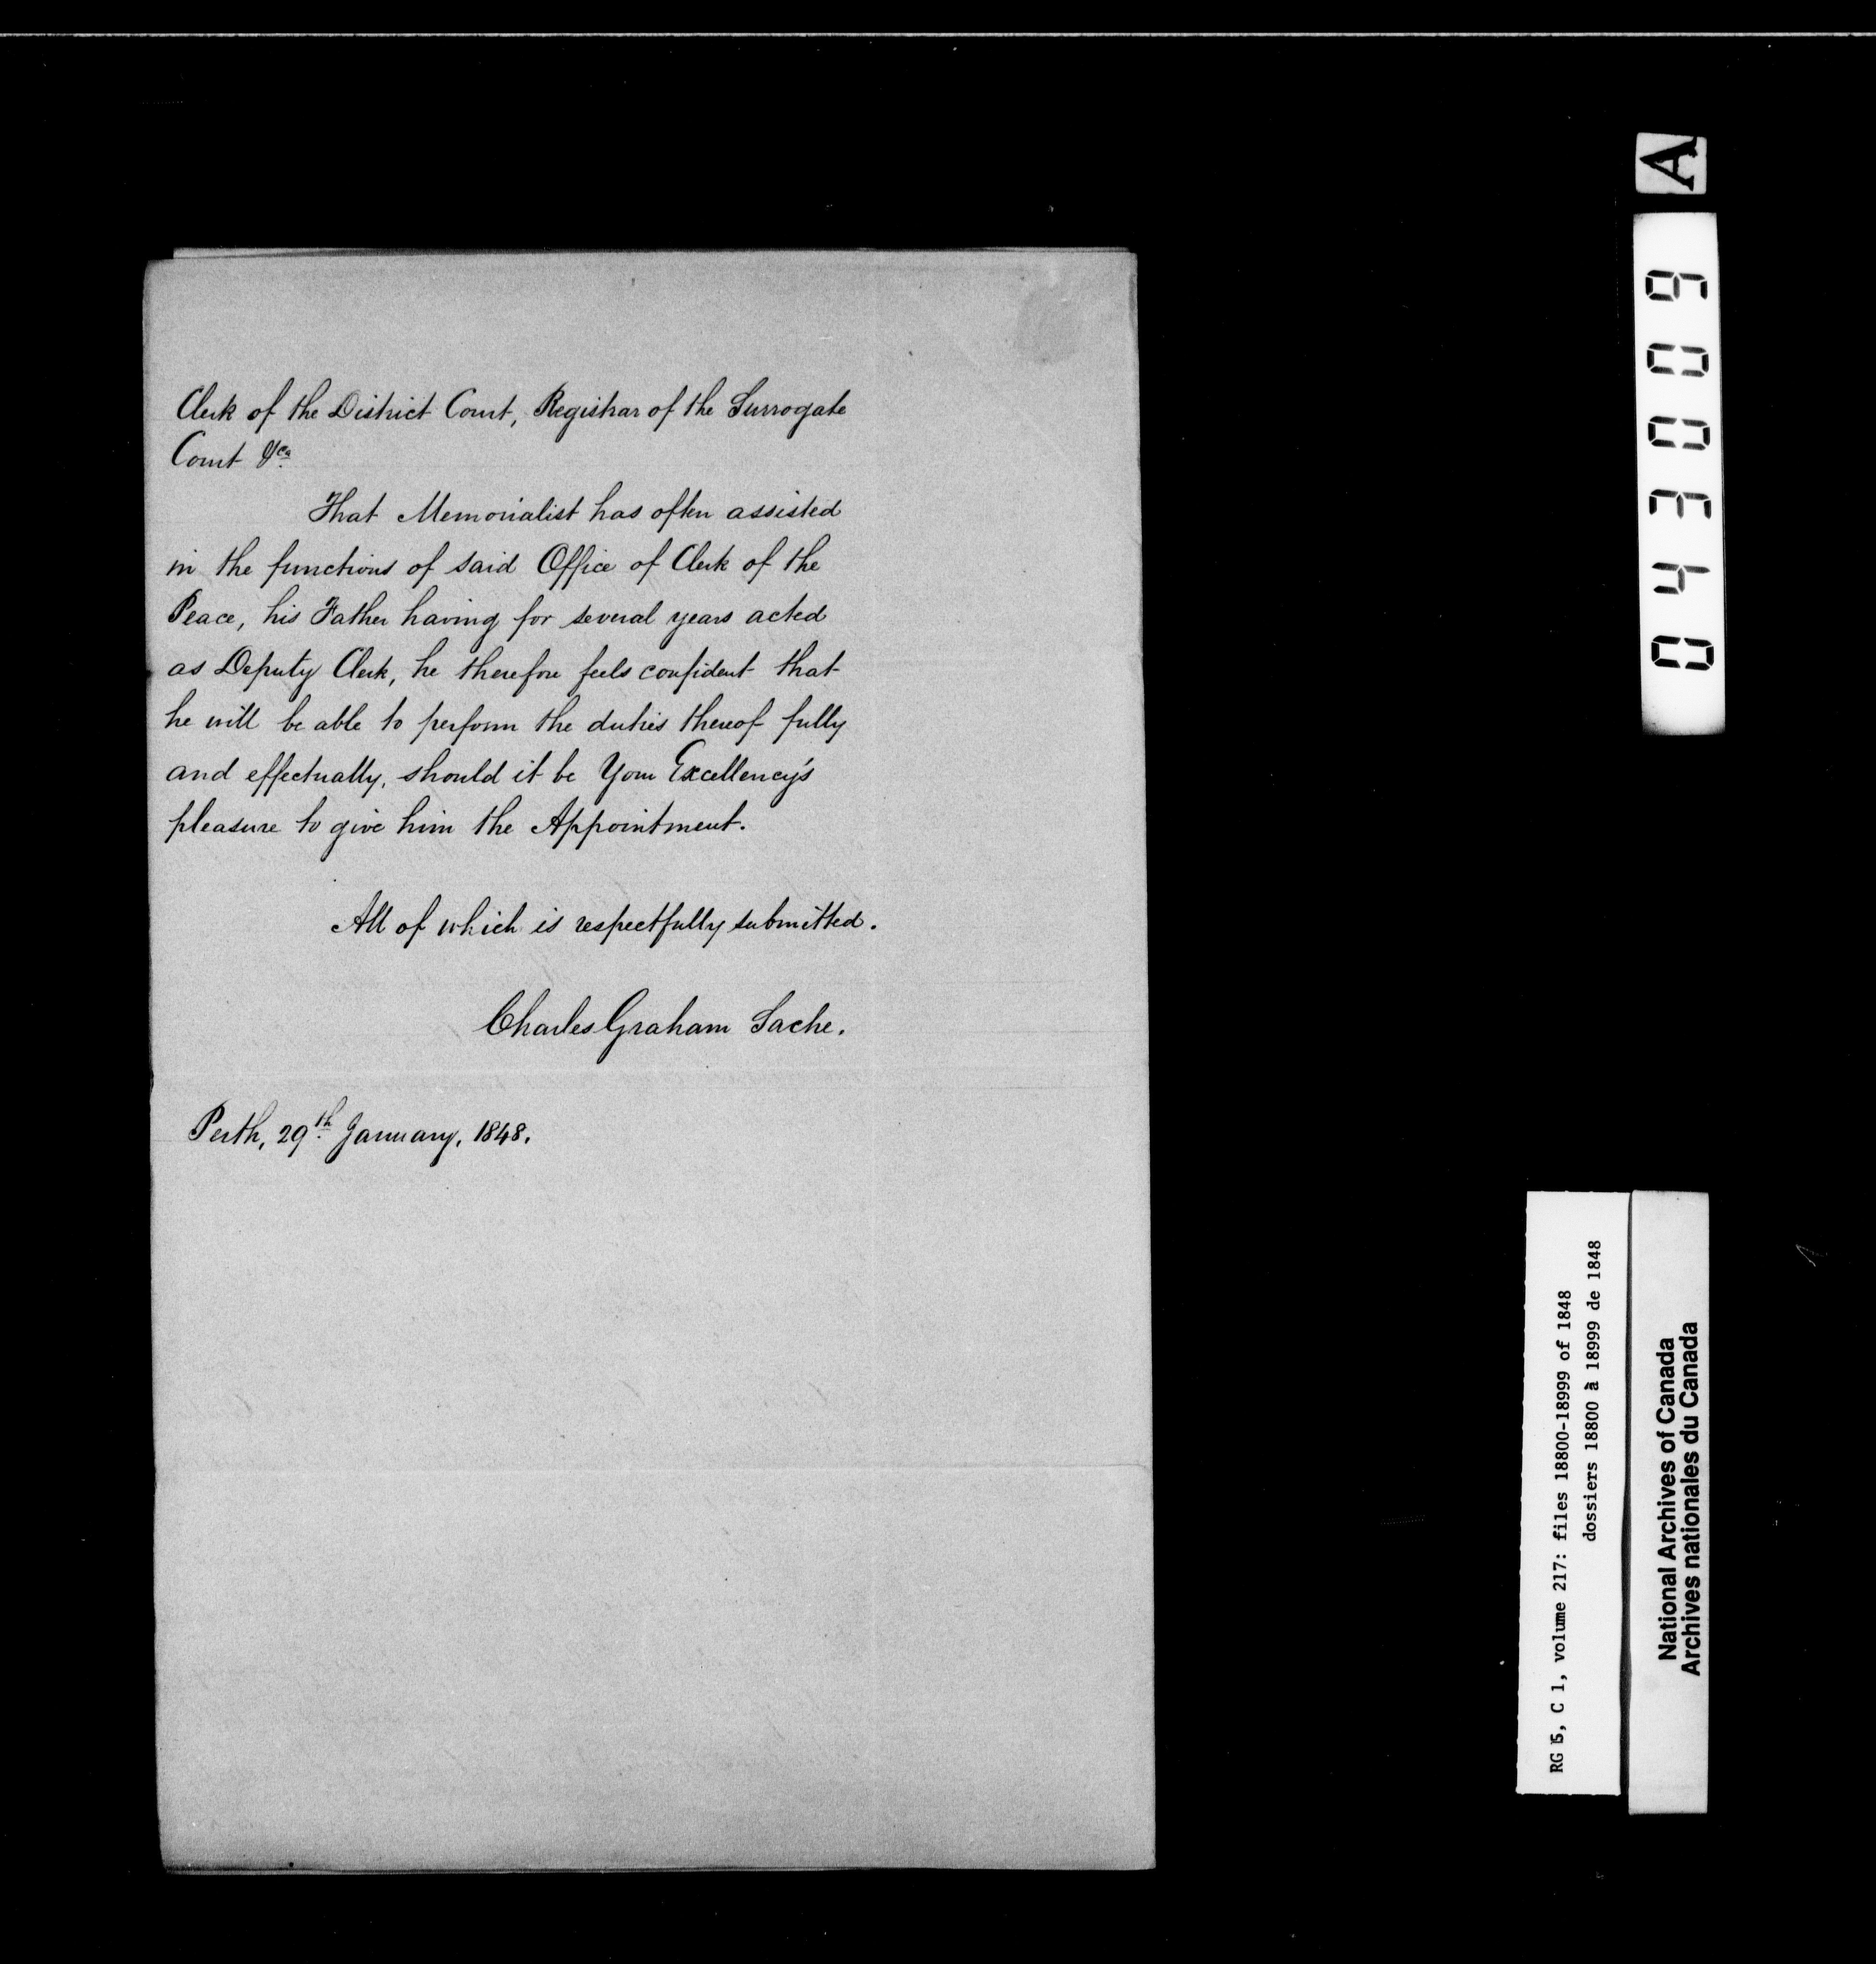 Clerk of the District Court, Registrar of the Surrogate
Court &ca.
That Memorialist has often assisted
in the functions of said Office of Clerk of the
Peace, his Father having for several years acted
as Deputy Clerk, he therefore feels confident that
he will be able to perform the duties thereof fully
and effectually, should it be Your Excellency's
pleasure to give him the Appointment.
All of which is respectfully submitted.
Charles Graham Sache.
Perth, 29th January, 1848.
A
043009
RG 5, C 1, volume 217: files 18800-18999 of 1848
dossiers 18800 à 18999 de 1848
National Archives of Canada
Archives nationales du Canada